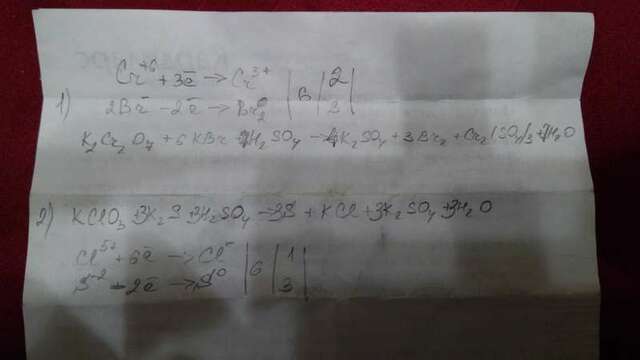 Cr⁺⁶ + 3ē → Cr³⁺ | 6 | 2 |
1) 2Br⁻ - 2ē → Br₂⁰ | 3 |
K₂Cr₂O₇ + 6KBr + 7H₂SO₄ → 4K₂SO₄ + 3Br₂ + Cr₂(SO₄)₃ + 7H₂O
2) KClO₃ + 3K₂S + 3H₂SO₄ → 3S + KCl + 3K₂SO₄ + 3H₂O
Cl⁵⁺ + 6ē → Cl⁻ | 6 | 1 |
S⁻² - 2ē → S⁰ | 3 |